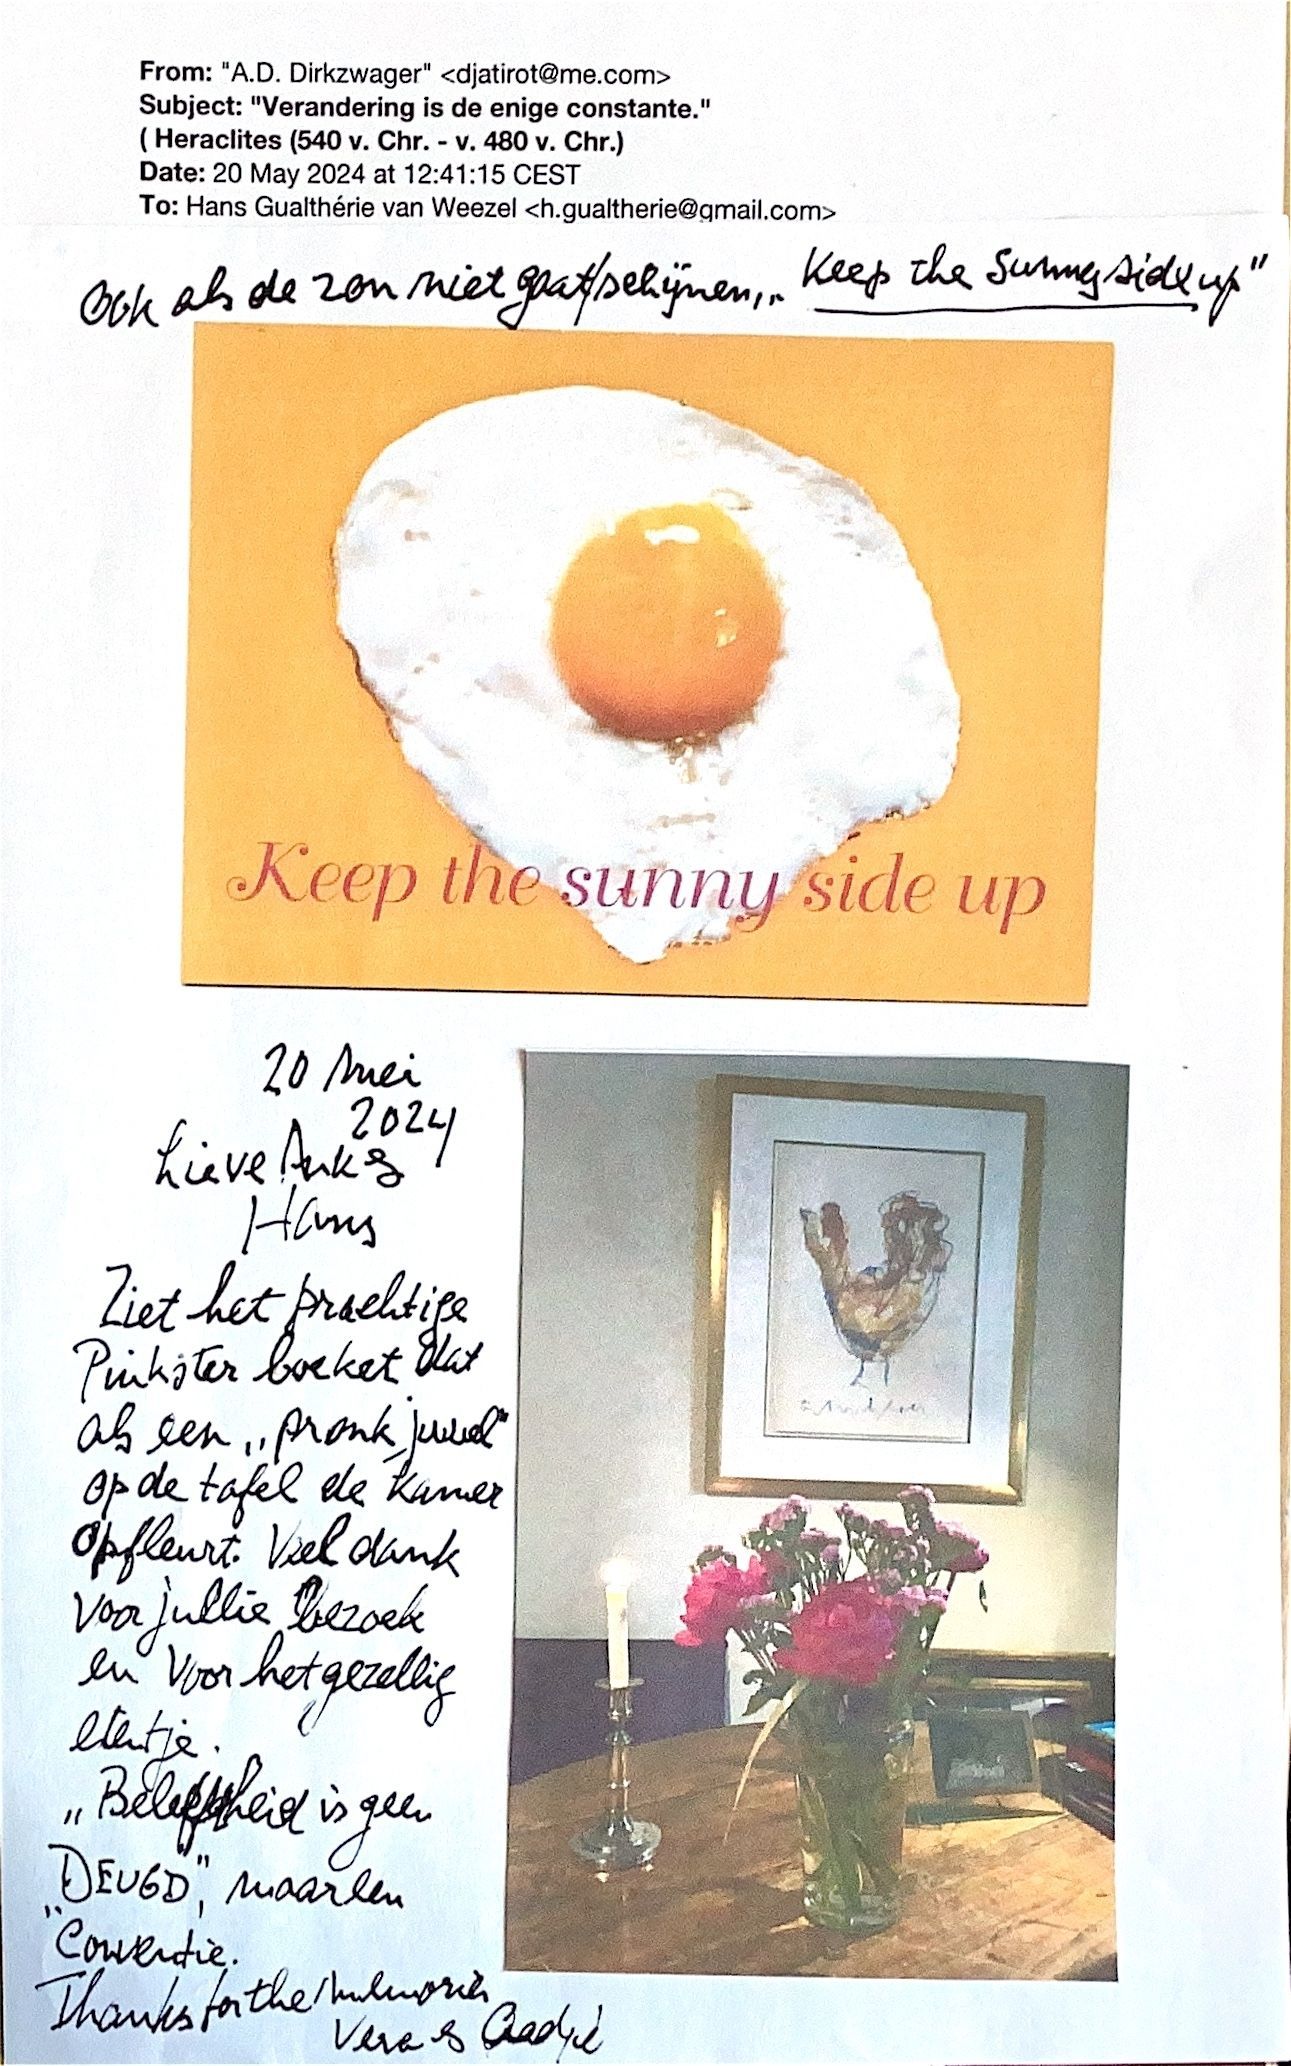 From: "A.D. Dirkzwager" <djatirot@me.com>
Subject: "Verandering is de enige constante."
( Heraclites (540 v. Chr. - v. 480 v. Chr.)
Date: 20 May 2024 at 12:41:15 CEST
To: Hans Gualthérie van Weezel <h.gualtherie@gmail.com>
Ook als de zon niet gaat schijnen,,, Keep the Sunny side up"
Keep the sunny side up
20 Mei
2024
Lieve Ank &
Hans
Ziet het prachtige
Pinkster boeket dat
als een ,,pronk juweel"
op de tafel de kamer
opfleurt. Veel dank
voor jullie bezoek
en voor het gezellig
etentje.
,,Beleefdheid is geen
DEUGD", maar een
"Conventie.
Thanks for the Memories
Vera &